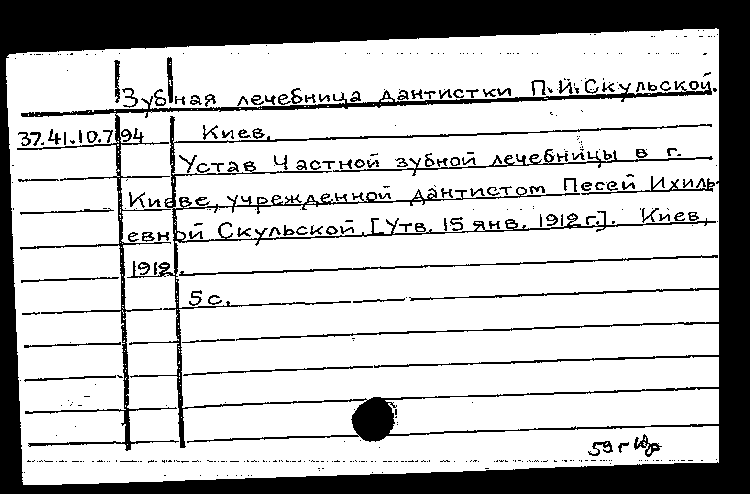 Зубная лечебница дантистки П.И.Скульской.
37.41.10.7 94 Киев.
Устав Частной зубной лечебницы в г.
Киеве, учрежденной дантистом Песей Ихиль-
евной Скульской. [Утв. 15 янв. 1912 г.]. Киев,
1912.
5 с.
59 г